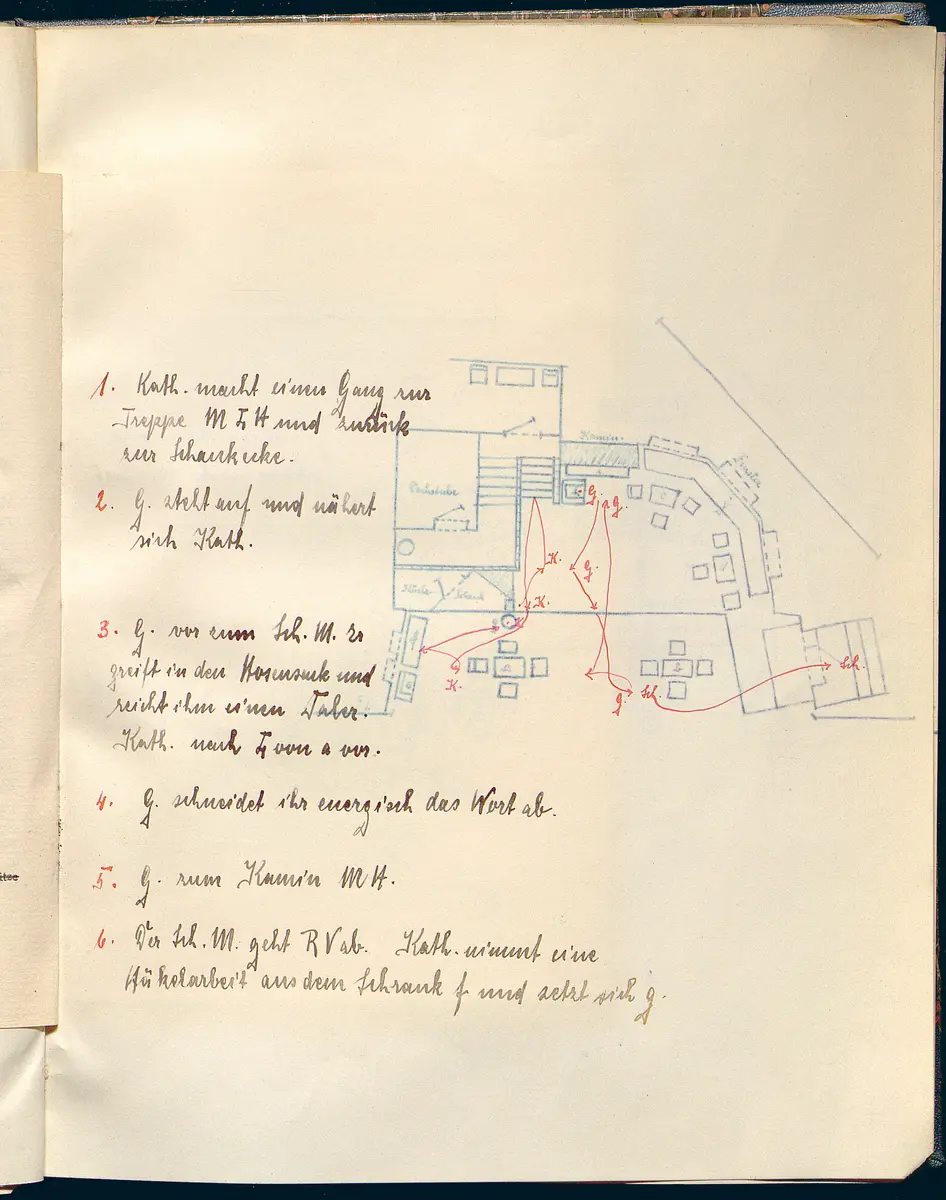 1. Kath. macht einen Gang zur
Treppe M L H und zurück
zur Schankecke.
2. G. steht auf und nähert
sich Kath.
3. G. vor zum Sch. M. Er
greift in den Hosensack und
reicht ihm einen Taler.
Kath. nach L von a vor.
4. G. schneidet ihr energisch das Wort ab.
5. G. zum Kamin M H.
6. Der Sch. M. geht R V ab. Kath. nimmt eine
Häkelarbeit aus dem Schrank f und setzt sich g.
Kamin
Fenster
Küche
Schank
G.
G.
K.
G.
K.
K.
G.
Sch.
Sch.